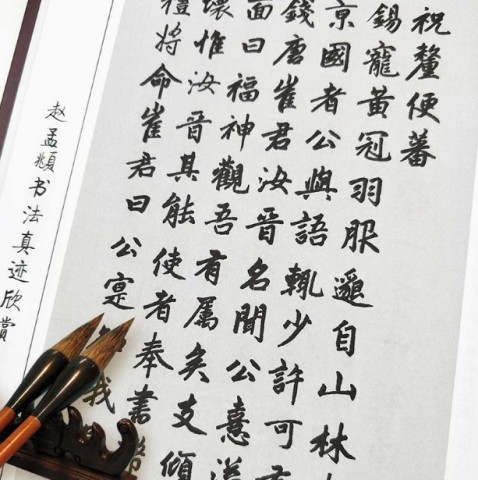 祝釐便蕃
錫寵黃冠羽服邈自山林
京國者公與語輒少許可
錢唐崔君汝晉名聞公憙溢
面曰福神觀吾有属矣支傾
壞惟汝晉其能使者奉書
禮將命崔君曰公寔我
赵孟頫书法真迹欣赏